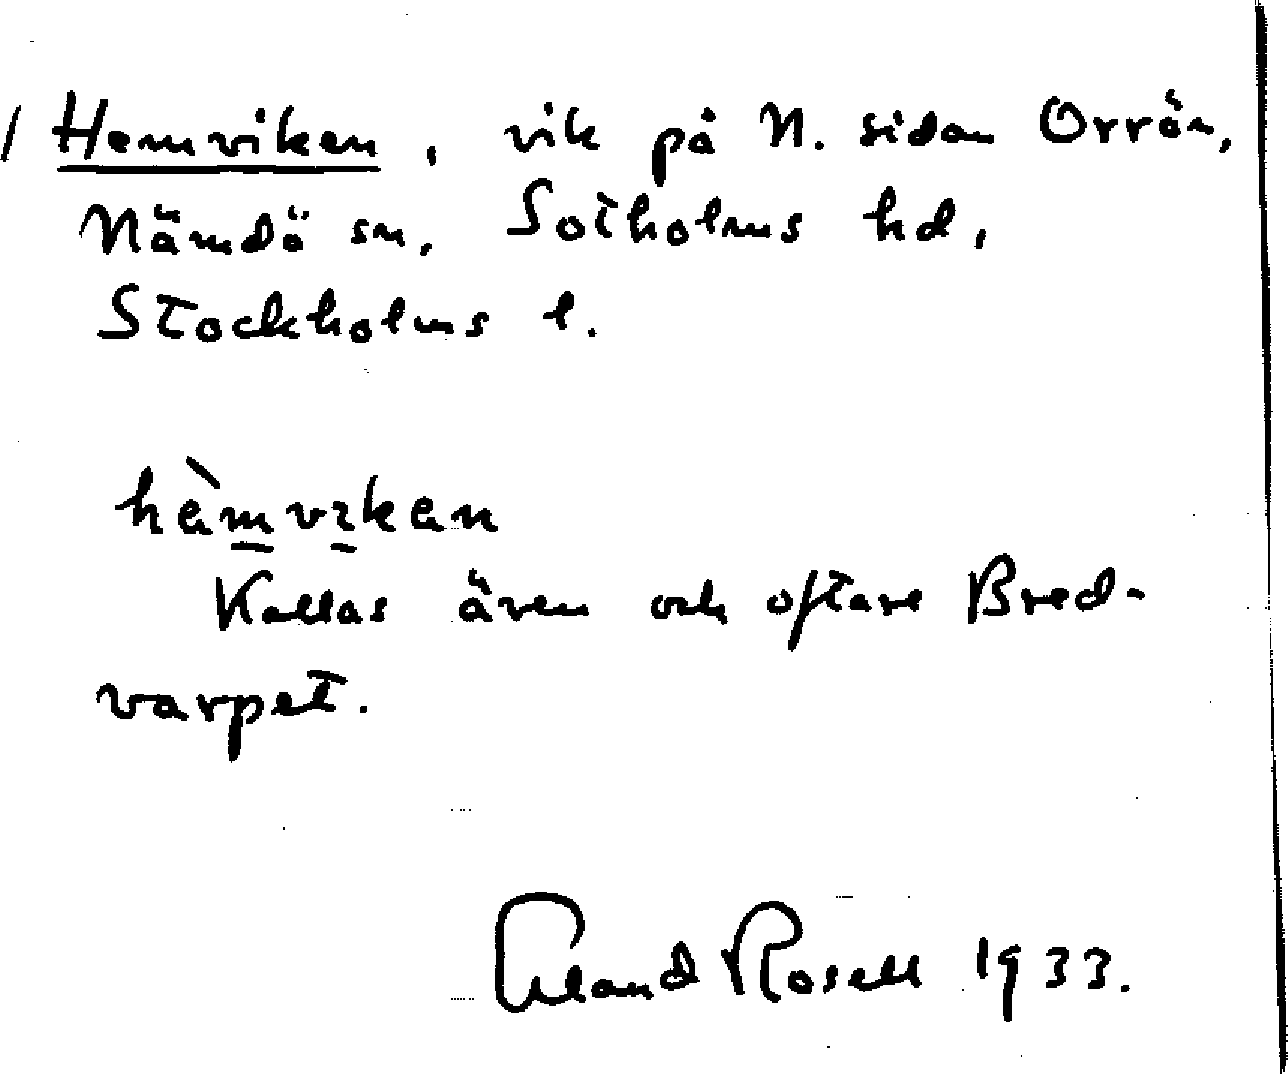 / Hemviken, vik på N. sidan Orrön,
Nämdö sn, Sotholms hd,
Stockholms l.
hèmvikan
Kallas även och oftare Bred-
varpet.
Erland Rosell 1933.